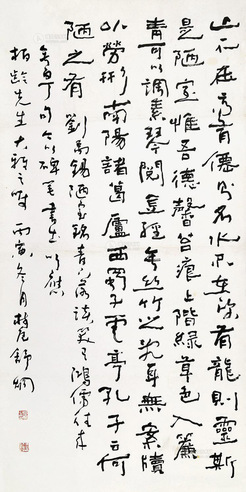 山不在高有僊則名水不在深有龍則靈斯
是陋室惟吾德馨苔痕上階綠草色入簾
青可以調素琴閱金經無絲竹之亂耳無案牘
之勞形南陽諸葛廬西蜀子雲亭孔子云何
陋之有 劉禹錫陋室銘青下落談笑有鴻儒往來
無白丁句 以碑筆書此以應
柏齡先生大雅之囑 丙寅冬月 舒炯